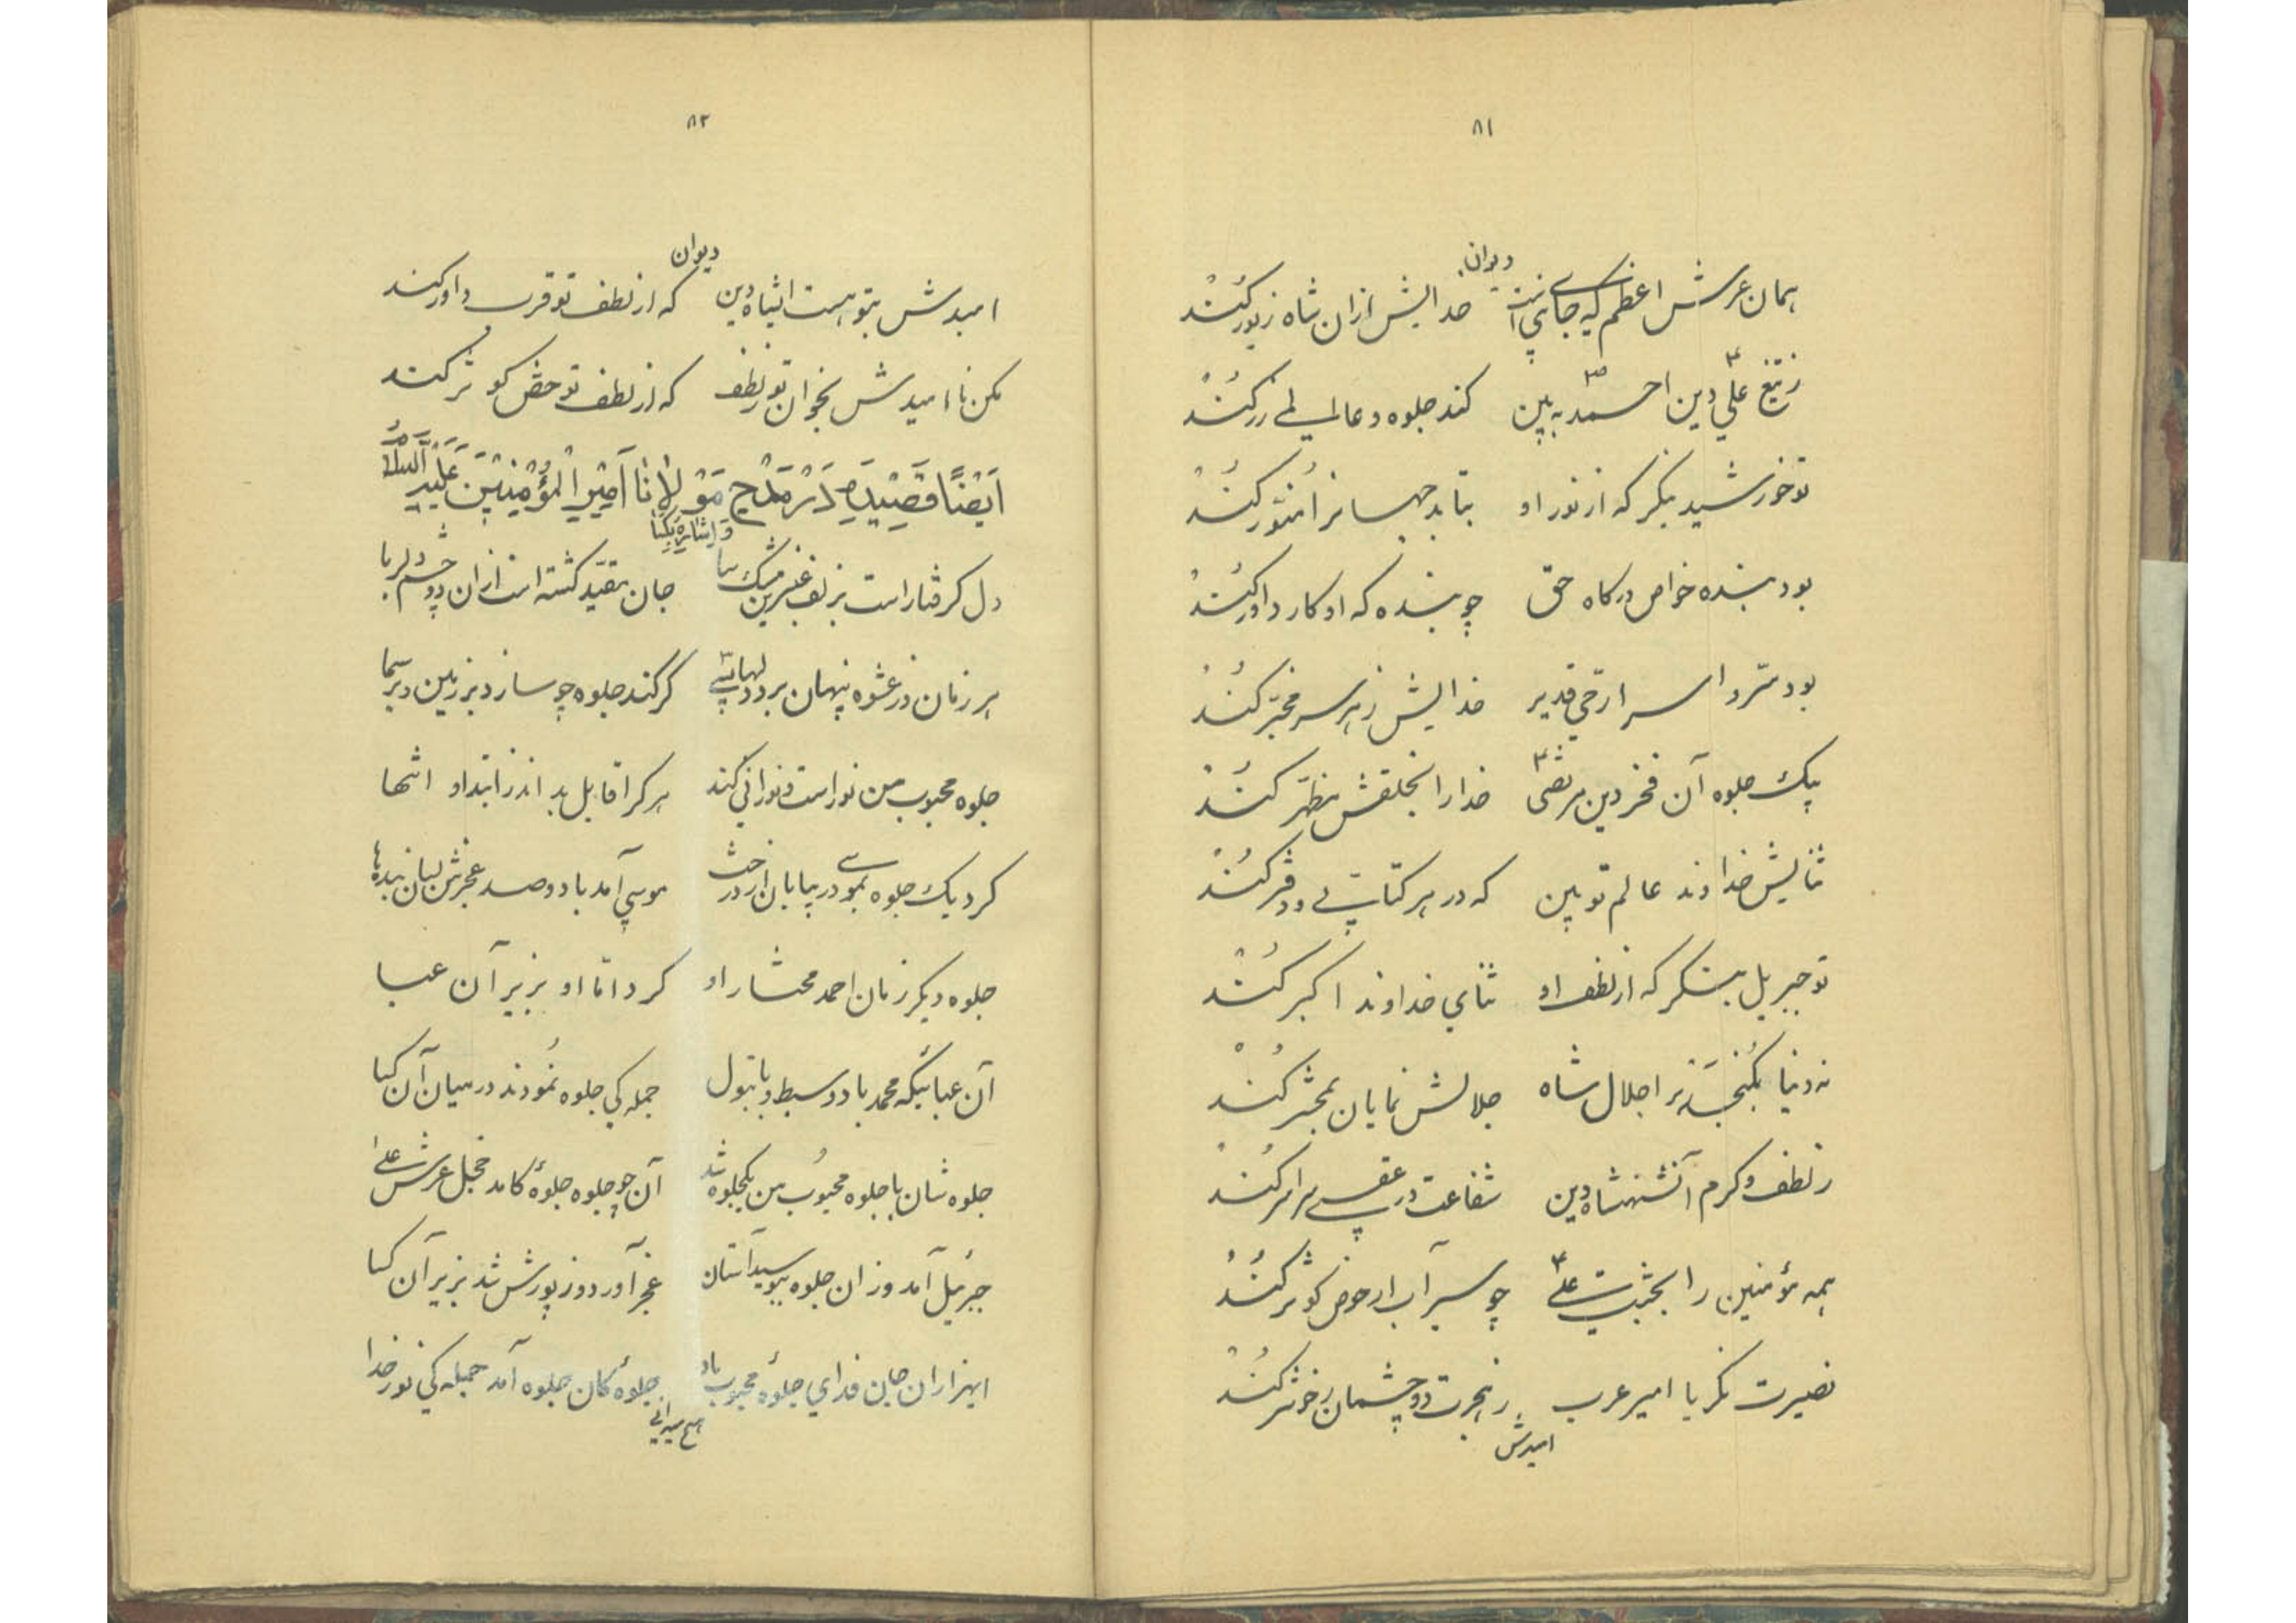 ۸۱
دیوان
همان عرش اعظم که جای نبی است خدایش ازان شاه زیور کُند
ز تیغ علی دین احمد به بین کند جلوه در عالمی زر کُند
تو خورشید بنگر که از نور او بتابد جهانرا مُنوّر کُند
بود بنده خواص درگاه حق چو بنده که او کار داور کُند
بود سّر و اسرار حیّ قدیر خدایش زهر سر مخبّر کُند
بیک جلوه آن فخر دین مرتضی خدا را بخلقش مظهّر کُند
ثنایش خداوند عالم تو بین که در هر کتابی و دفتر کُند
تو جبریل بنگر که از لطف او ثنای خداوند اکبر کُند
نه دنیا بگُنجد بَر اجلال شاه جلالش نمایان بمحشر کُند
ز لطف و کرم آنشهنشاه دین شفاعت در عقبی سراسر کُند
همه مؤمنین را بحُب علی چو سیراب از حوض کوثر کُند
نصیرت نگر یا امیر عرب ز هجرت دو چشمان خود تر کُند
امیدش
۸۲
دیوان
امیدش بتو هست ایشاه دین که از لطف تو قرب داور کند
مکن نا امیدش بخوان تو ز لطف که از لطف تو حض کوثر کند
اَیْضًا قَصِیْدَه دَرْ مَدْحِ مَوْلانٰا اَمِیْرِ الْمُؤْمِنِیْنَ عَلَیْهِ السَّلٰامُ
وَ اِشٰارَه بِکِسٰا
دل گرفتار است بر زلف عنبرین مشک سا جان مقیّد گشته است ازان دو چشم دلربا
هر زمان در عشوه پنهان برد دلهای گر کند جلوه چو سازد بر زمین و بر سما
جلوه محبوب من نور است و نورانی کند هر کرا قابل بد اندر ابتدا و انتها
کرد یک جلوه نمودر بیابان از درخت موسی آمد با دو صد عجزش لبان بنده ها
جلوه دیگر زمان احمد مختار او کرد امّا او بزیر آن عبا
آن عبائیکه محمد با دو سبط و با بتول جمله کی جلوه نُمودند در میان آن کسا
جلوه شان با جلوه محبوُب من یکجلوه شد آن چو جلوه جلوهٔ کامد خجل عرش علا
جبرئیل آمد وز ان جلوه ببوسید آستان عجز آورد وز پوزش شد بزیر آن کسا
ایهزاران جان فدای جلوهٔ محبوب باد جلوهٔ کان جلوه آمد جمله کی نور خدا
هیچ میدانی